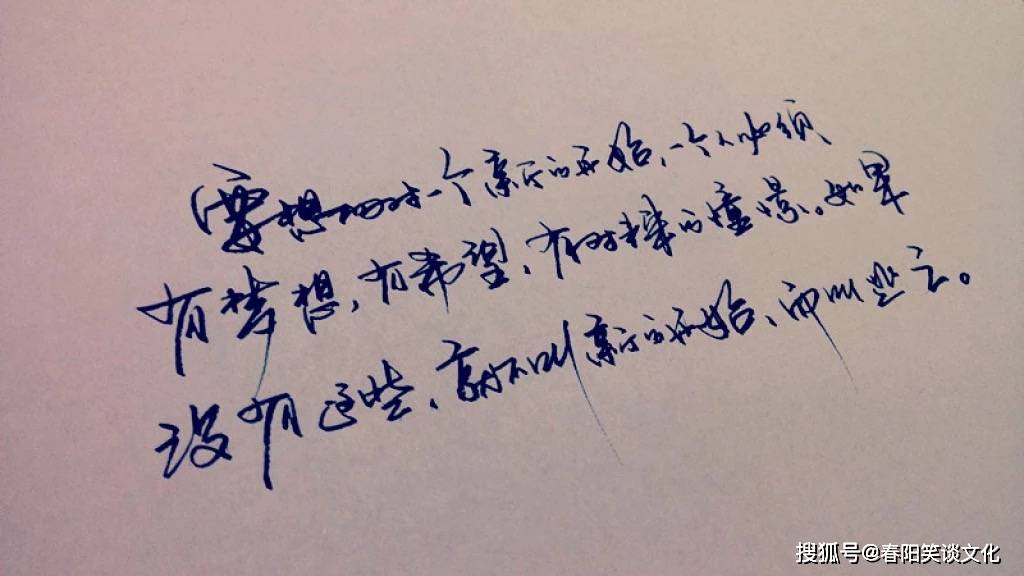 要想面对一个新的开始，一个人必须
有梦想，有希望，有对未来的憧憬。如果
没有这些，就不叫新的开始，而叫逃亡。
搜狐号@春阳笑谈文化